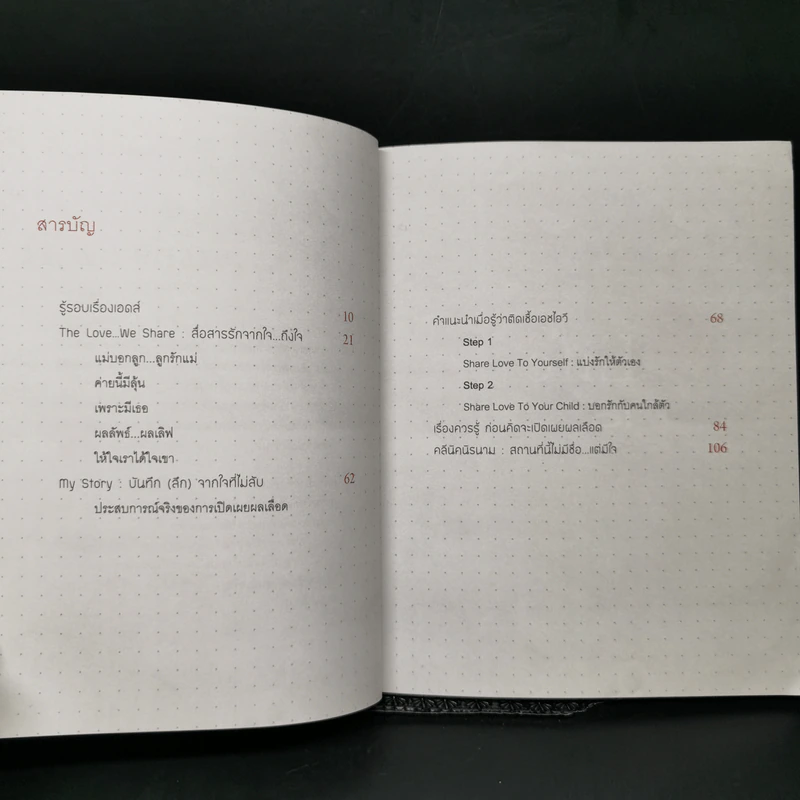 สารบัญ
รู้รอบเรื่องเอดส์ 10
The Love...We Share : สื่อสารรักจากใจ...ถึงใจ 21
แม่บอกลูก...ลูกรักแม่
ค่ายนี้มีลุ้น
เพราะมีเธอ
ผลลัพธ์...ผลเลิฟ
ให้ใจเราได้ใจเขา
My Story : บันทึก (ลึก) จากใจที่ไม่ลับ 62
ประสบการณ์จริงของการเปิดเผยผลเลือด
คำแนะนำเมื่อรู้ว่าติดเชื้อเอชไอวี 68
Step 1
Share Love To Yourself : แบ่งรักให้ตัวเอง
Step 2
Share Love To Your Child : บอกรักกับคนใกล้ตัว
เรื่องควรรู้ ก่อนคิดจะเปิดเผยผลเลือด 84
คลีนิคนิรนาม : สถานที่นี้ไม่มีชื่อ...แต่มีใจ 106